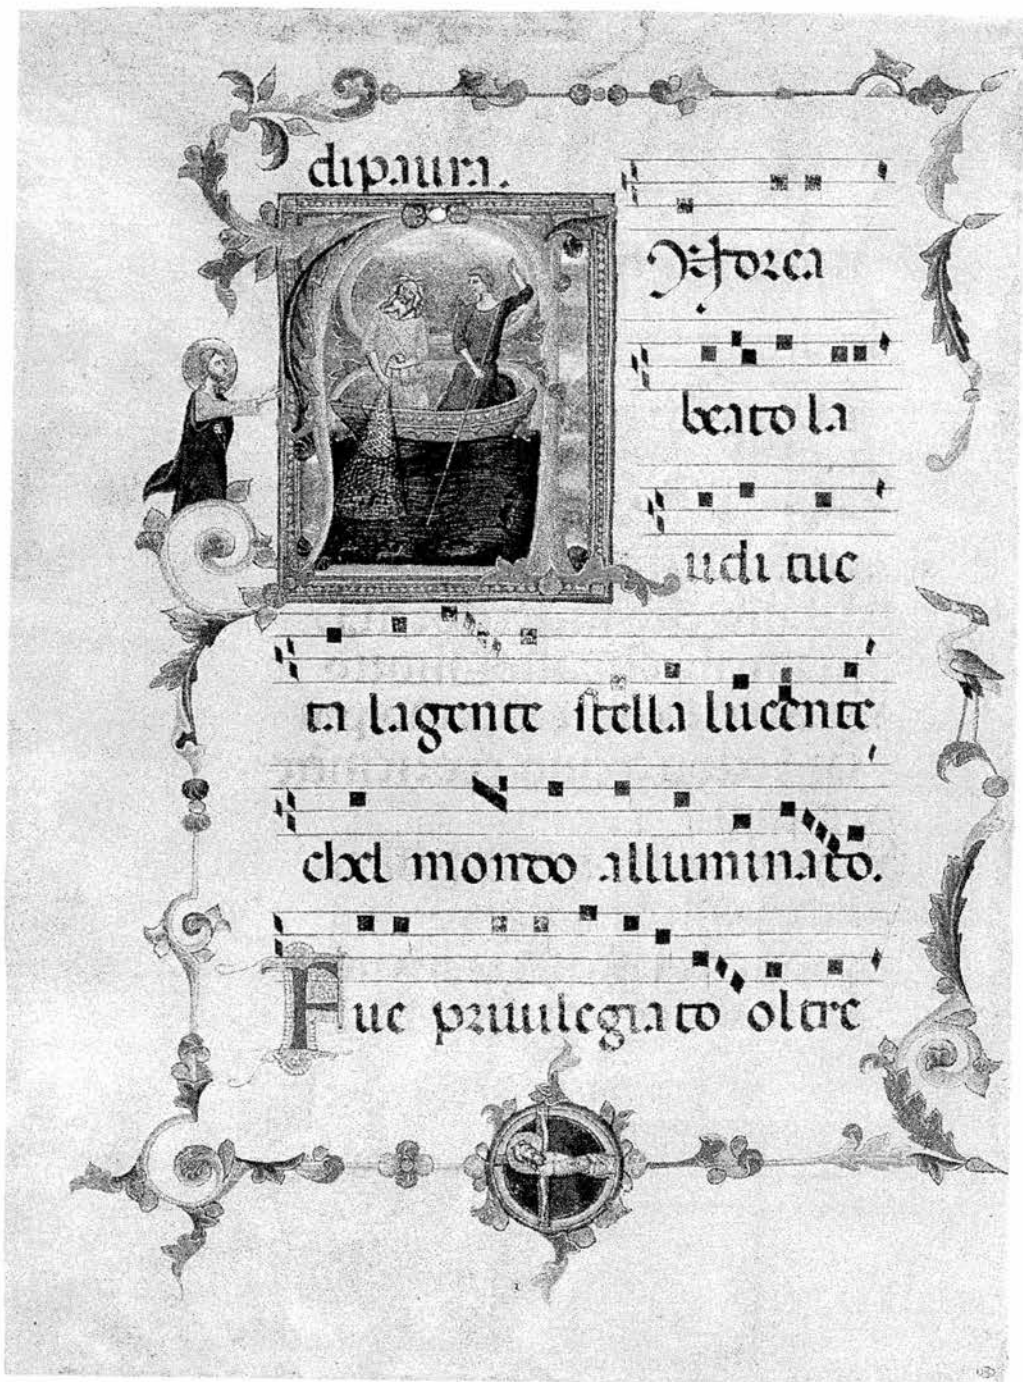 dipaura.
Andrea
beato la
udi tut
ta lagente stella lucente
chel mondo alluminato.
Fue priuilegiato oltre